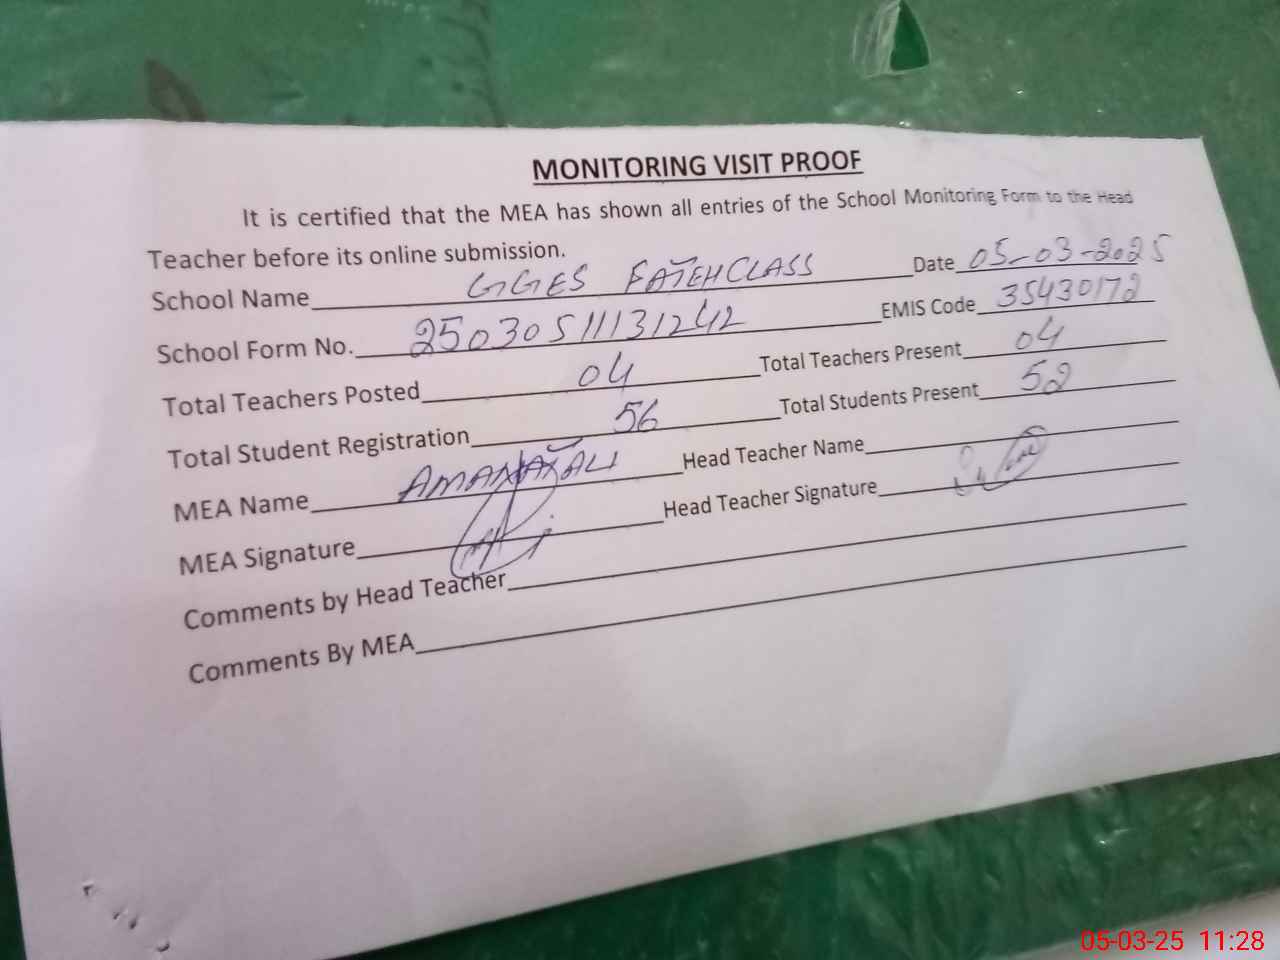 MONITORING VISIT PROOF
It is certified that the MEA has shown all entries of the School Monitoring Form to the Head
Teacher before its online submission.
School Name GGES FATEHCLASS Date 05-03-2025
School Form No. 25030511131242 EMIS Code 35430172
Total Teachers Posted 04 Total Teachers Present 04
Total Student Registration 56 Total Students Present 52
MEA Name AMANAT ALI Head Teacher Name
MEA Signature Head Teacher Signature
Comments by Head Teacher
Comments By MEA
05-03-25 11:28